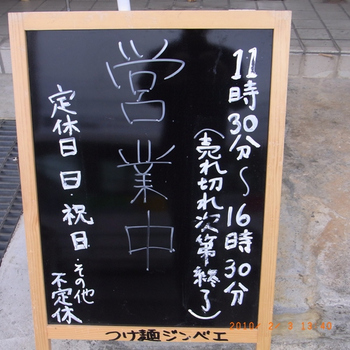 11時30分～16時30分
(売れ切れ次第終了)
営業中
定休日 日・祝日・その他
不定休
つけ麺ジンベエ